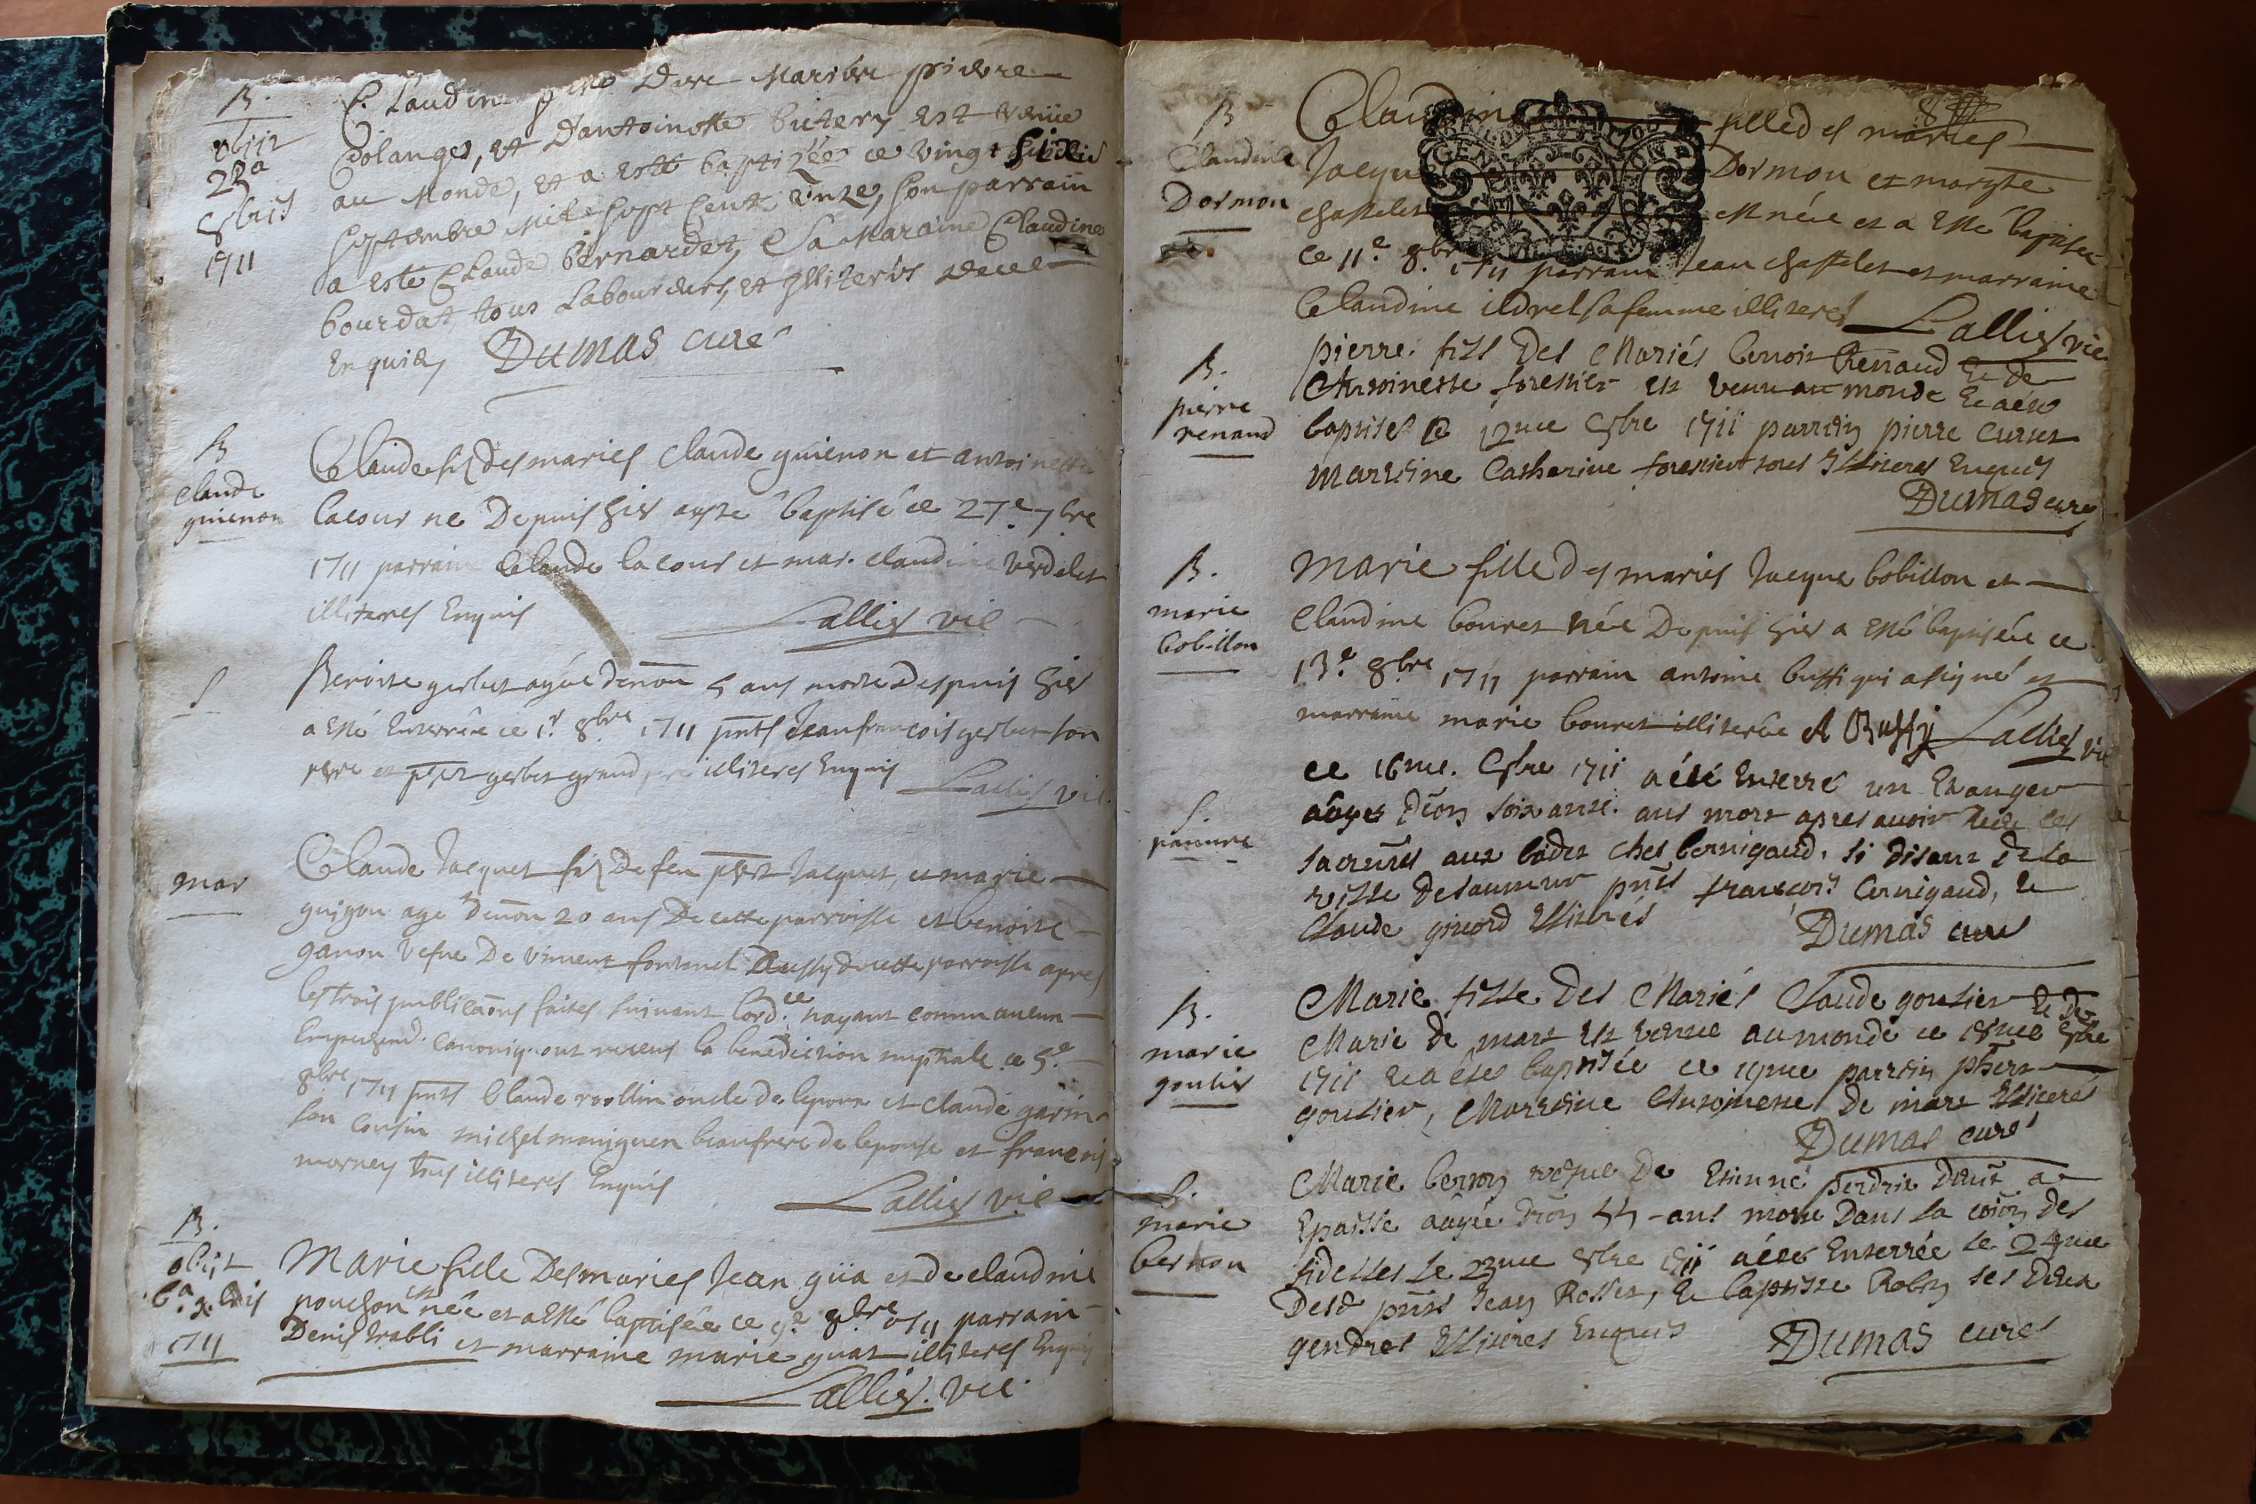 B.
obiit
23a
8bris
1711
Claudine Mariés pierre
Colanges, et Dantoinette est venüe
au Monde, et a esté baptizée ce vingt six
septembre Mil sept cent onze, son parrain
a esté Claude bernardet, & sa Maraine Claudine
bourdat, tous Laboureurs, et Illiterés de ce
Enquis Dumas curé
B
claude
guienon
Claude fils des mariés claude guienon et antoinette
lacour né Depuis hier a esté baptisé ce 27e 7bre
1711 parrain Claude lacour et mar. claudine verdelet
illiterés Enquis Lallier vic
S
Benoite gerbet agée denon 5 ans morte Depuis hier
a esté Enterrée ce 1r 8bre 1711 pnts Jean francois gerbet son
pere et gerbet grand pere illiteres Enquis Lallier vic.
mar
Claude Jacquet fils De feu Jacquet, et marie
guigon agé denon 20 ans De cette parroisse et benoite
ganon vefve De vincent fontanel Aussy de cette parroisse apres
les trois publicaons faites suivant lord.ce nayant connu aucun
Empeschemt. canoniq. ont receus la benediction nuptiale ce 5e
8bre 1711 pnts Claude rollin oncle de lepoux et claude garin
son cousin michel moniguen beaufrere de lepouse et francois
morney tous illiteres Enquis
Lallier vic
B.
obiit
6a xbris
1711
Marie fille Des mariés Jean güa et de claudine
pouchon est née et a esté baptisée ce 9e 8bre 1711 parrain
Denis trabli et marraine marie guat illiteres Enquis
Lallier. vic.
8
B
Claudine
Dormon
Claudine fille des mariés
Jacque Dormon et margte
chastelet est née et a esté baptisée
ce 11e 8bre 1711 parrain Jean chastelet et marraine
Claudine sa femme illiteres Lallier vic
B.
pierre
renaud
pierre fils Des Mariés benoit Renaud Et de
Antoinette forestier est venu au monde Et a esté
baptisé le 12me 8bre 1711 parrein pierre curtet
marreine Catherine forestier tous Illiteres Enquis
Dumas curé
B.
marie
bobillon
Marie fille Des mariés Jacque bobillon et
Claudine bouret née Depuis hier a esté baptisée ce
13e 8bre 1711 parrain antoine buffi qui a signé et
marraine marie bouret illiterée A Buffy Lallier vic
S.
pauvre
ce 16me. 8bre 1711 a été Enterré un Etranger
aâgé Denon soixante. ans mort apres avoir receu les
sacremts aux chez bernigaud, se disant de la
ville de saumur pnts francois bernigaud, et
Claude girard Illiterés Dumas curé
B.
marie
goutier
Marie fille Des Mariés Claude goutier Et De
Marie de mars Est venue au monde ce 8bre
1711 Et a été baptisée ce parrein
goutier, Marreine Antoinette De mars Illiterés
Dumas curé
S.
marie
berthon
Marie berton vefve De Etienne perdrix
Epaisse aagée Denon 55 ans morte Dans la coion des
fidelles le 23me 8bre 1711 a été Enterrée le 24me
Dud pnts Jean Rosset, Et baptiste Robin ses Deux
gendres Illiteres Enquis Dumas curé
GEN